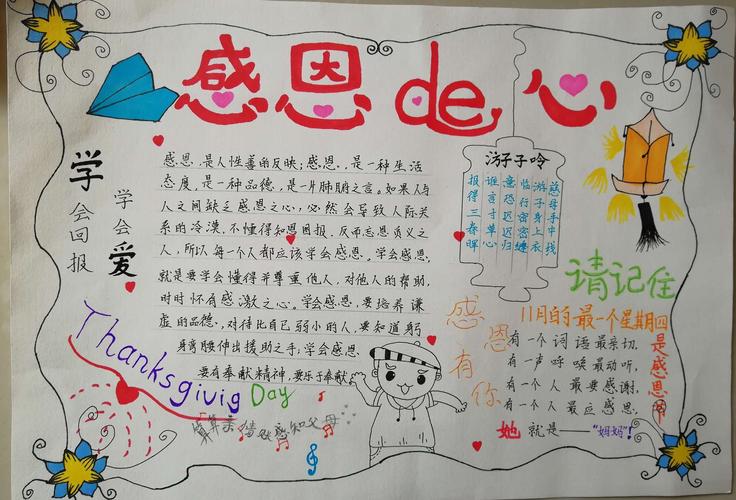 感恩de心
学会回报
学会爱
感恩，是人性善的反映；感恩，是一种生活
态度，是一种品德，是一片肺腑之言。如果人与
人之间缺乏感恩之心，必然会导致人际关
系的冷漠，不懂得知恩图报，反而忘恩负义之
人，所以每一个人都应该学会感恩。学会感恩，
就是要学会懂得并尊重他人，对他人的帮助，
时时怀有感激之心。学会感恩，要培养谦
虚的品德，对待比自己弱小的人，要知道躬
身弯腰伸出援助之手；学会感恩、
要有奉献精神，要乐于奉献。
游子吟
慈母手中线
游子身上衣
临行密密缝
意恐迟迟归
谁言寸草心
报得三春晖
请记住
11月的最一个星期四
是感恩节
感恩有你
有一个词语最亲切，
有一声呼唤最动听，
有一个人最要感谢，
有一个人最应感恩，
她就是——“妈妈”！
Thanksgivig Day